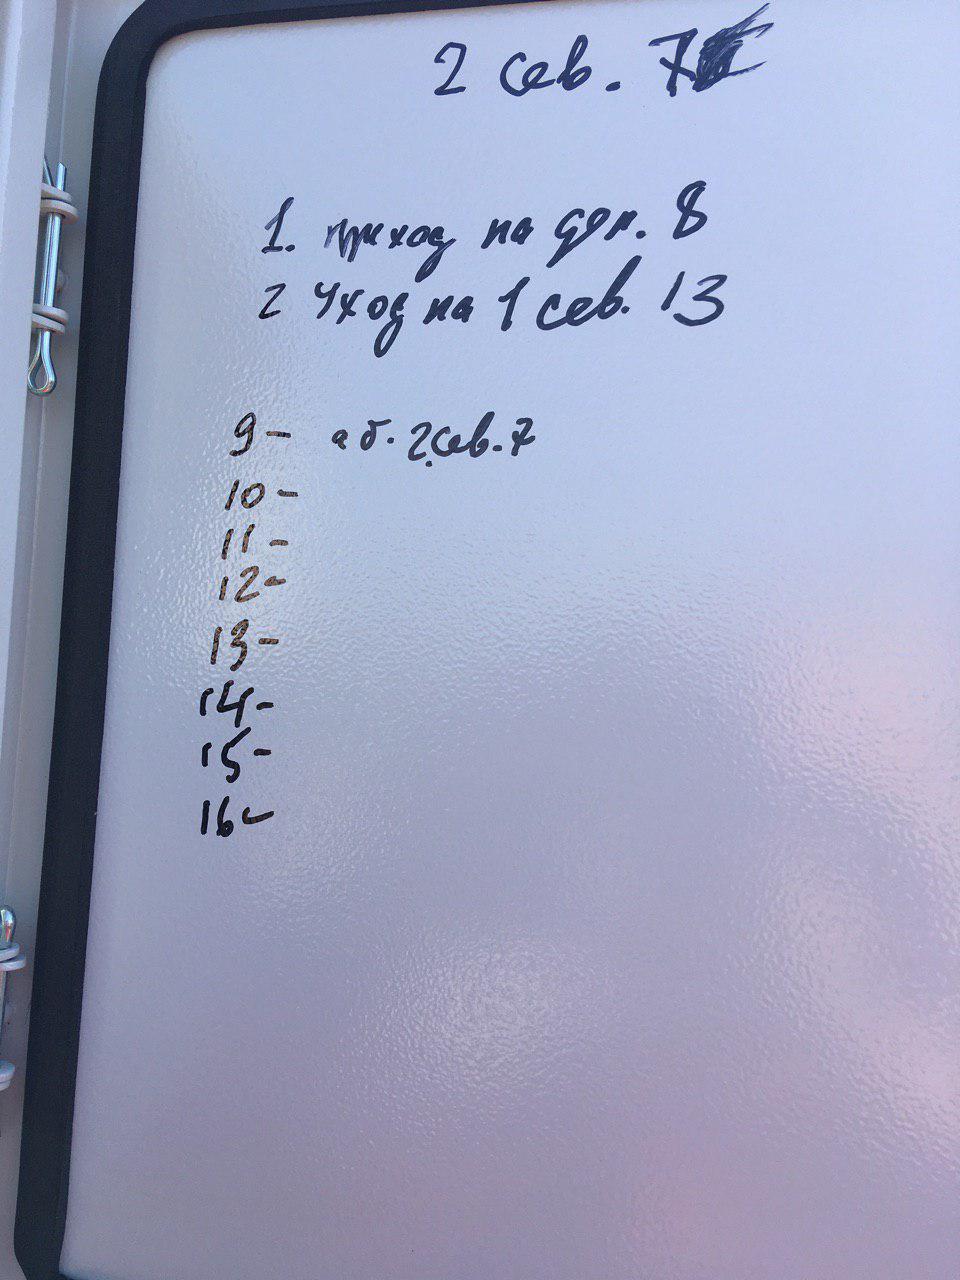 2 сев. 7
1. приход на доп. 8
2 Уход на 1 сев. 13
9- аб. 2 сев. 7
10-
11-
12-
13-
14-
15-
16-